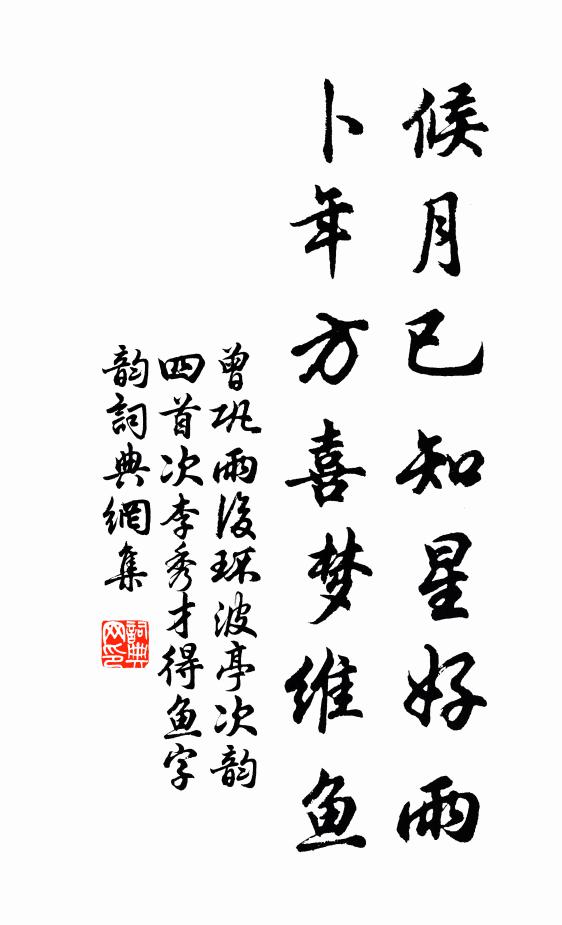 候月已知星好雨
卜年方喜梦維鱼
曾巩雨後环波亭次韵
四首次李秀才得鱼字
韵詞典網集
詞典网印